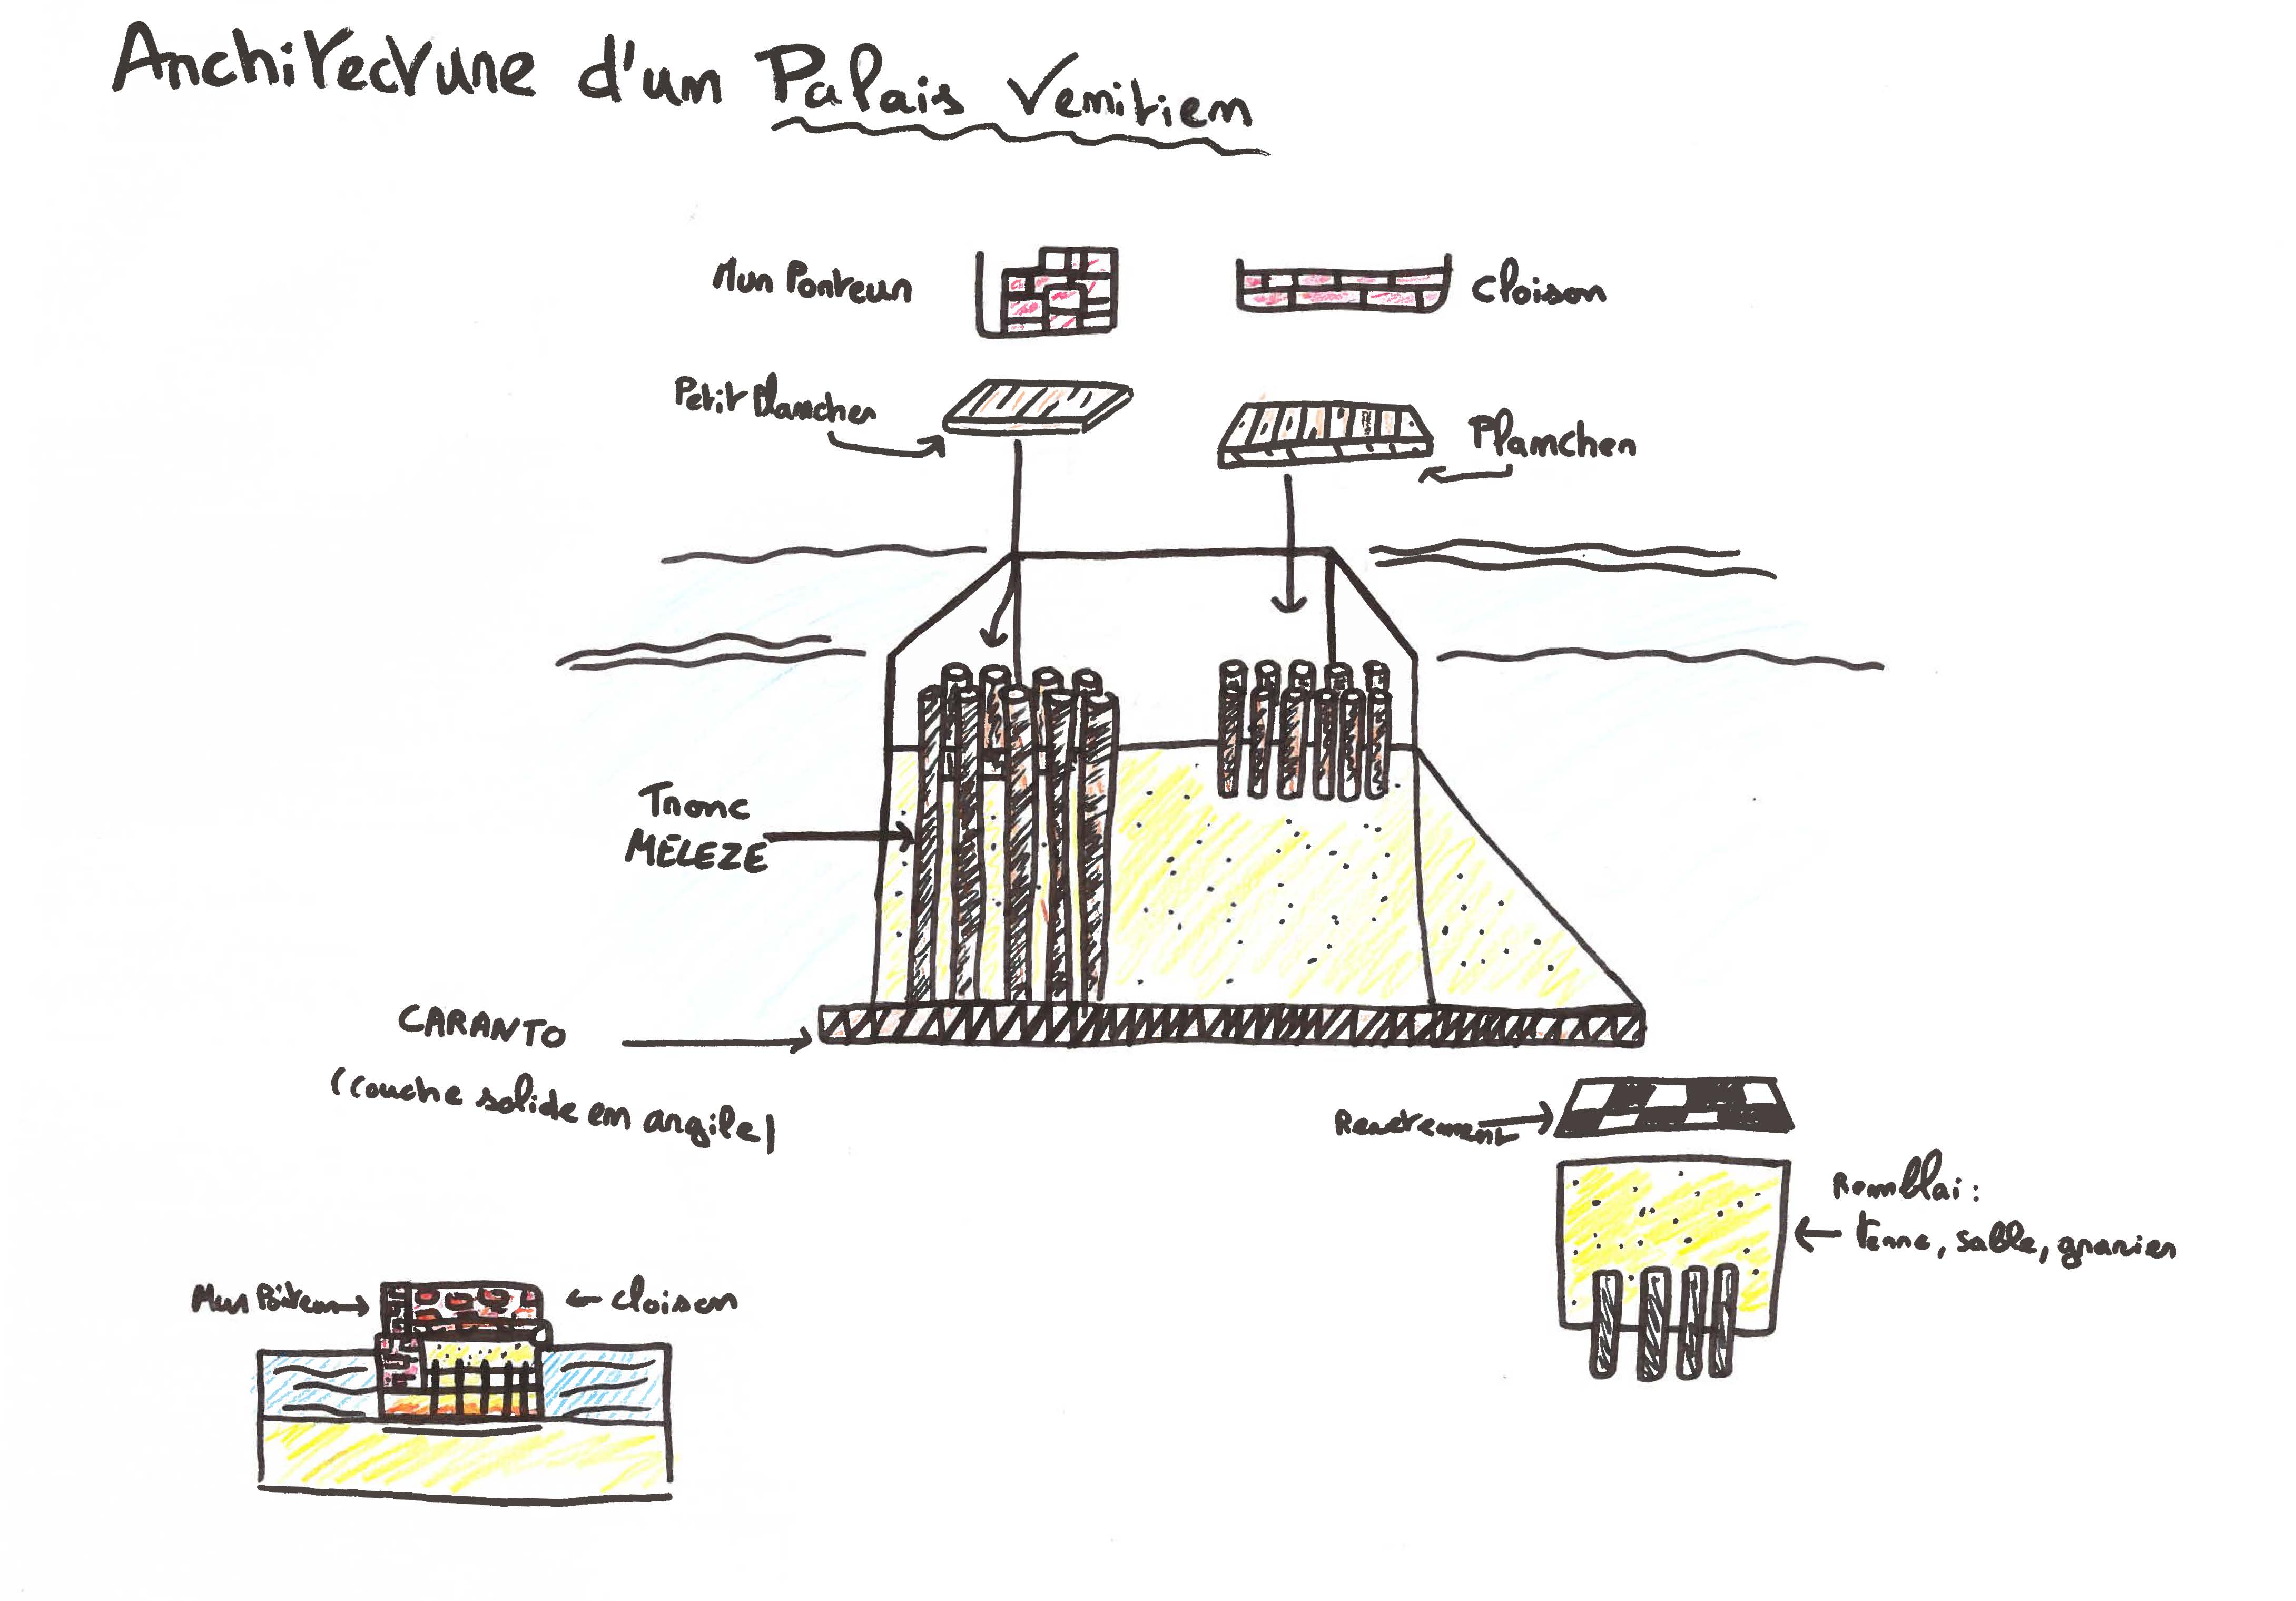 Architecture d'un Palais Venitien
Mur Porteur
Cloison
Petit Plancher
Plancher
Tronc
MELEZE
CARANTO
(couche solide en argile)
Revetement
Remblai :
terre, sable, gravier
Mur Porteur
cloison